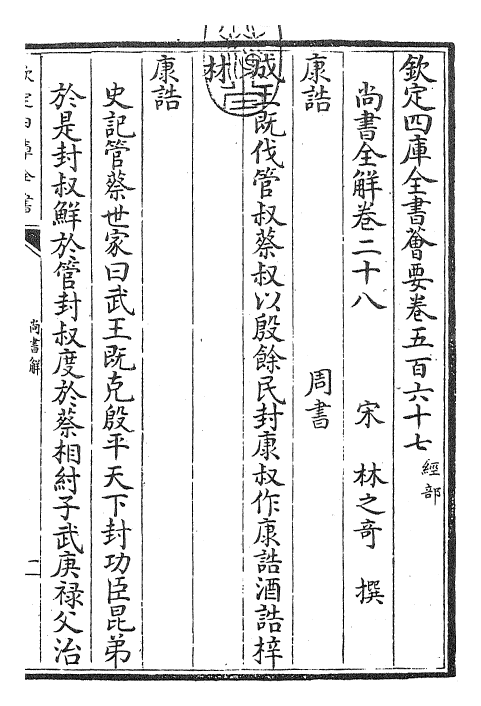 欽定四庫全書薈要卷五百六十七 經部
尚書全解卷二十八 宋 林之奇 撰
康誥 周書
成王既伐管叔蔡叔以殷餘民封康叔作康誥酒誥梓
材
康誥
史記管蔡世家曰武王既克殷平天下封功臣昆弟
於是封叔鮮於管封叔度於蔡相紂子武庚禄父治
欽定四庫全書
尚書解